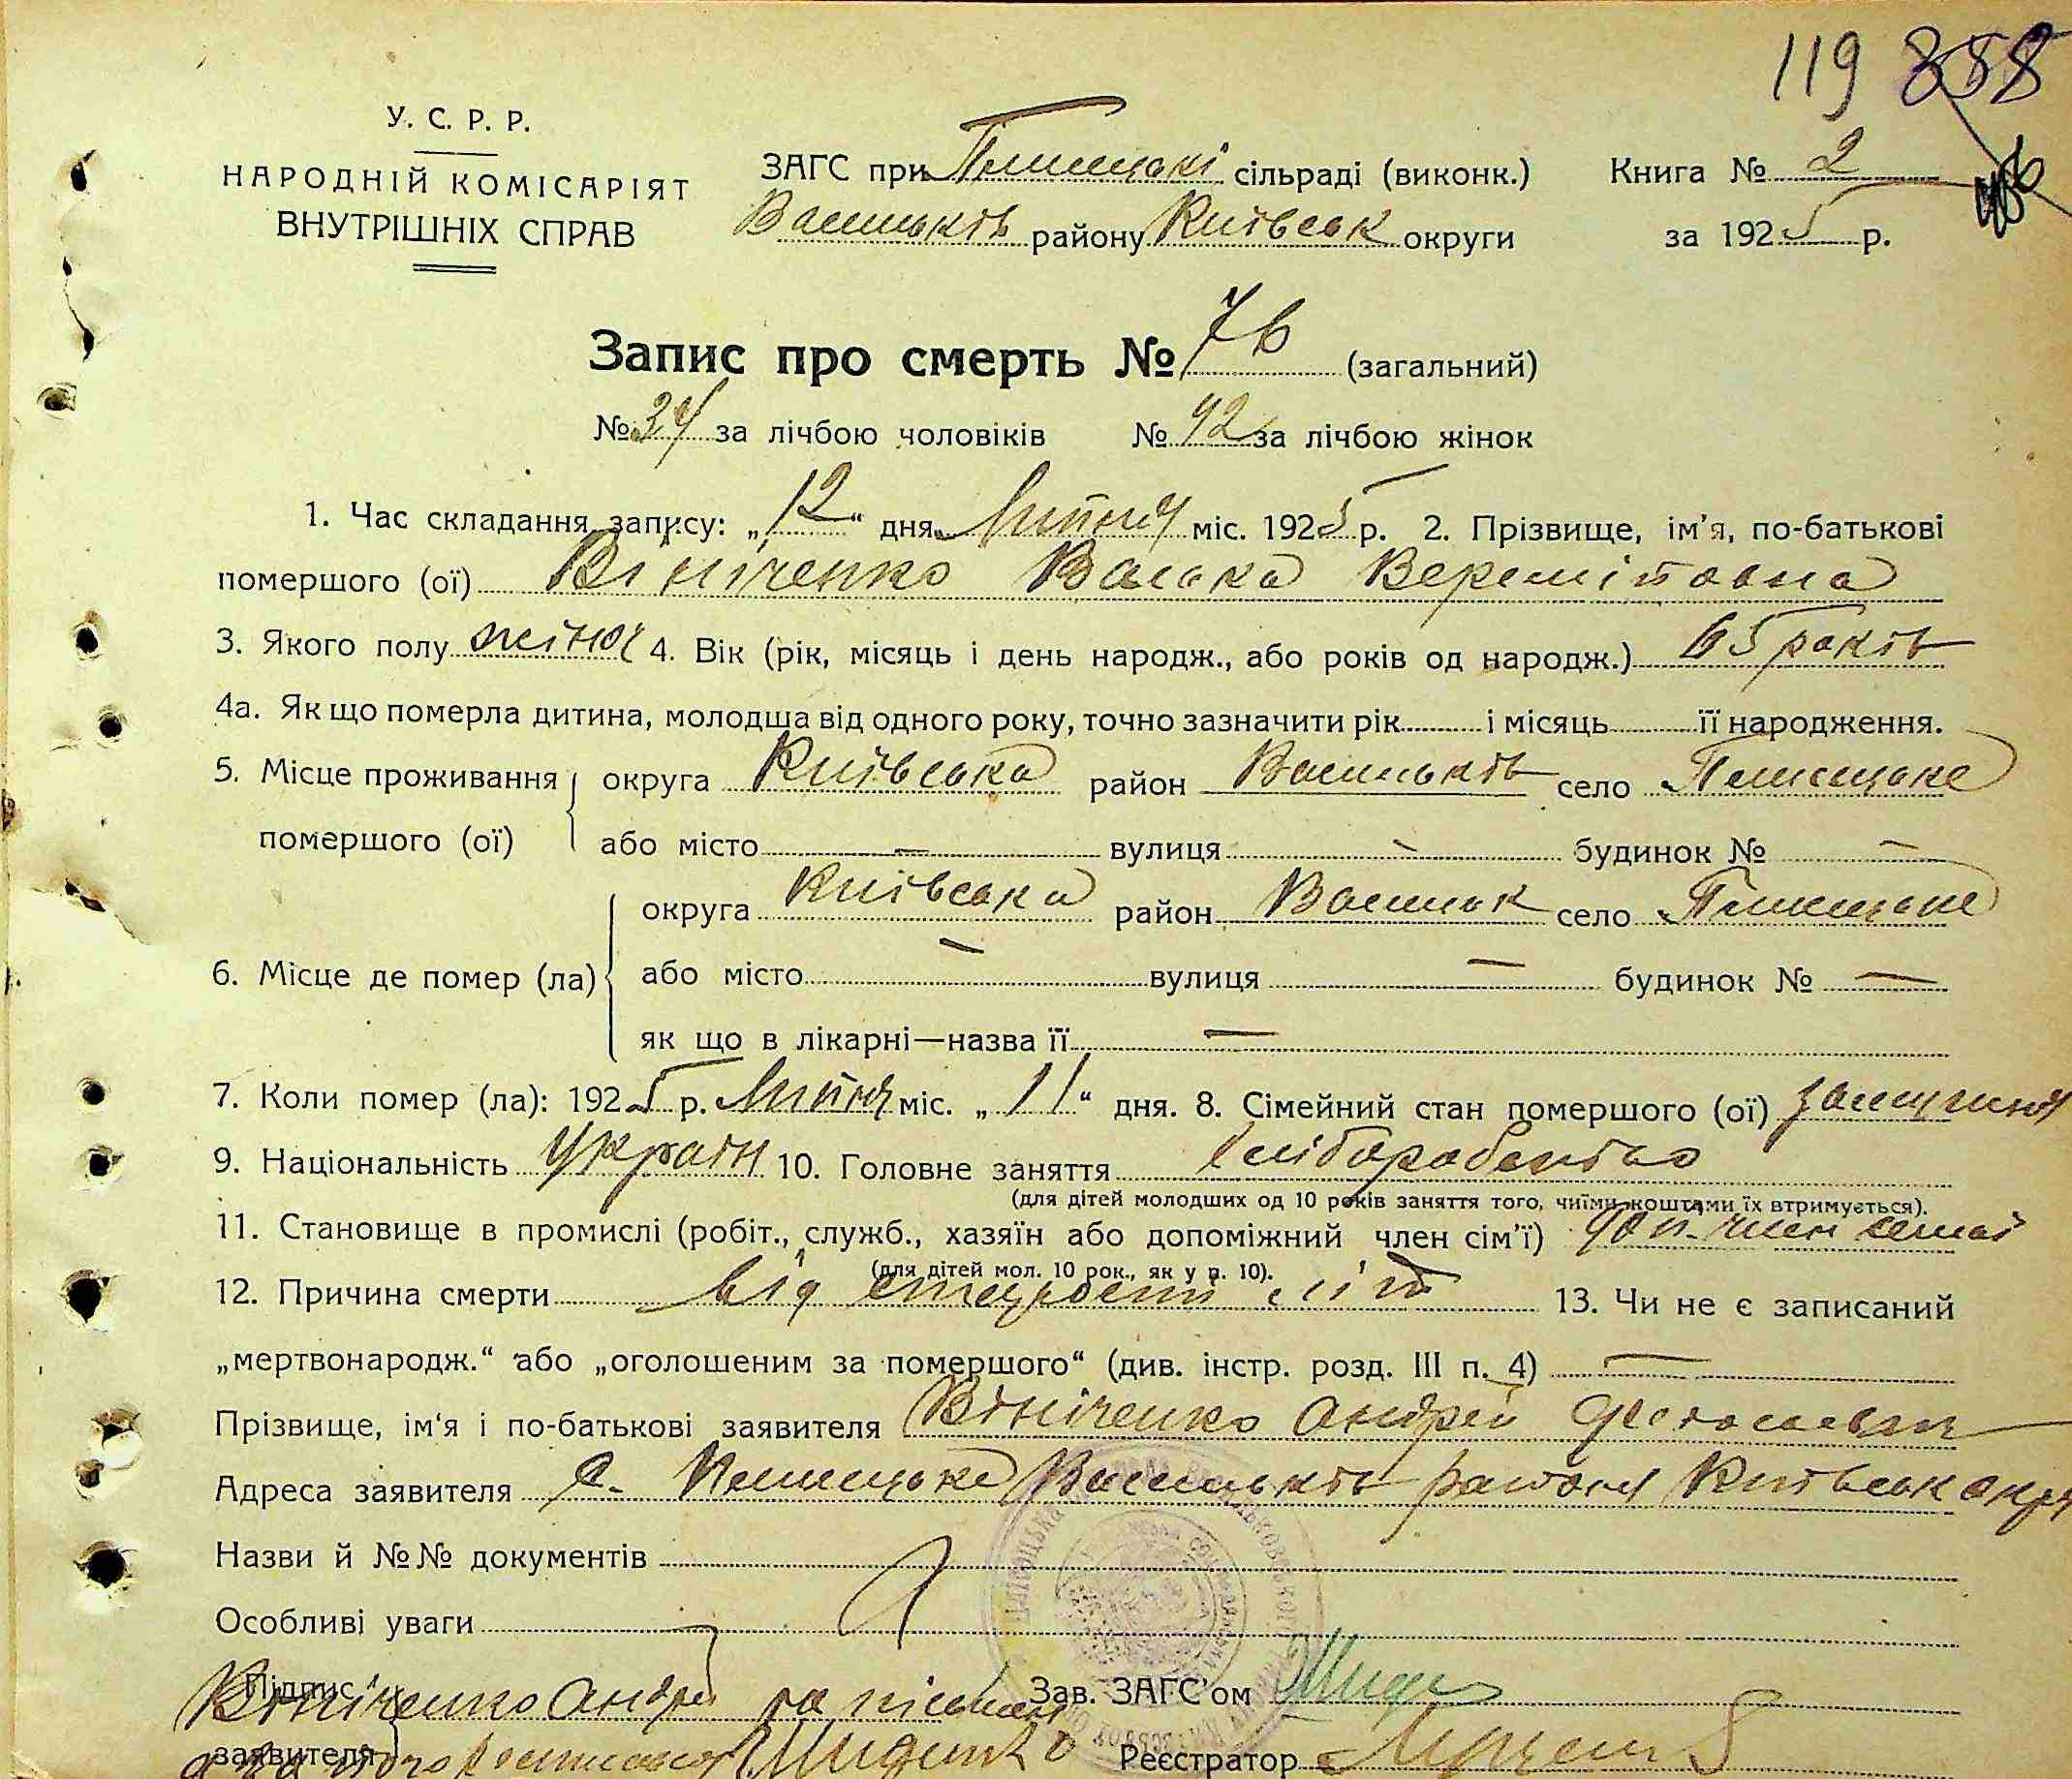 119 858
У. С. Р. Р.
НАРОДНІЙ КОМІСАРІЯТ
ВНУТРІШНІХ СПРАВ
ЗАГС при Плисецькі сільраді (виконк.)
Васильків району Київськ округи
Книга № 2
за 1925 р.
Запис про смерть № 76 (загальний)
№ 34 за лічбою чоловіків № 42 за лічбою жінок
1. Час складання запису: „12“ дня Липня міс. 1925 р. 2. Прізвище, ім’я, по-батькові
помершого (ої) Вініченко Васька
3. Якого полу жіноч 4. Вік (рік, місяць і день народж., або років од народж.) 65 років
4а. Як що померла дитина, молодша від одного року, точно зазначити рік і місяць її народження.
5. Місце проживання помершого (ої) округа Київська район Васильків село Плисецьке
або місто — вулиця — будинок № —
6. Місце де помер (ла) округа Київська район Васильк село Плисецьке
або місто — вулиця — будинок № —
як що в лікарні—назва її —
7. Коли помер (ла): 1925 р. Липня міс. „11“ дня. 8. Сімейний стан помершого (ої) замужня
9. Національність Україн 10. Головне заняття хліборобство
(для дітей молодших од 10 років заняття того, чиїми коштами їх втримується).
11. Становище в промислі (робіт., служб., хазяїн або допоміжний член сім’ї) доп. член семьї
(для дітей мол. 10 рок., як у п. 10).
12. Причина смерти від старости літ 13. Чи не є записаний
„мертвонародж.“ або „оголошеним за помершого“ (див. інстр. розд. III п. 4) —
Прізвище, ім‘я і по-батькові заявителя Вініченко Андрей
Адреса заявителя с. Плисецьке Васильків района Київськ окр
Назви й №№ документів
Особливі уваги
Підпис заявителя Вініченко Андрей
Зав. ЗАГС’ом
Реєстратор